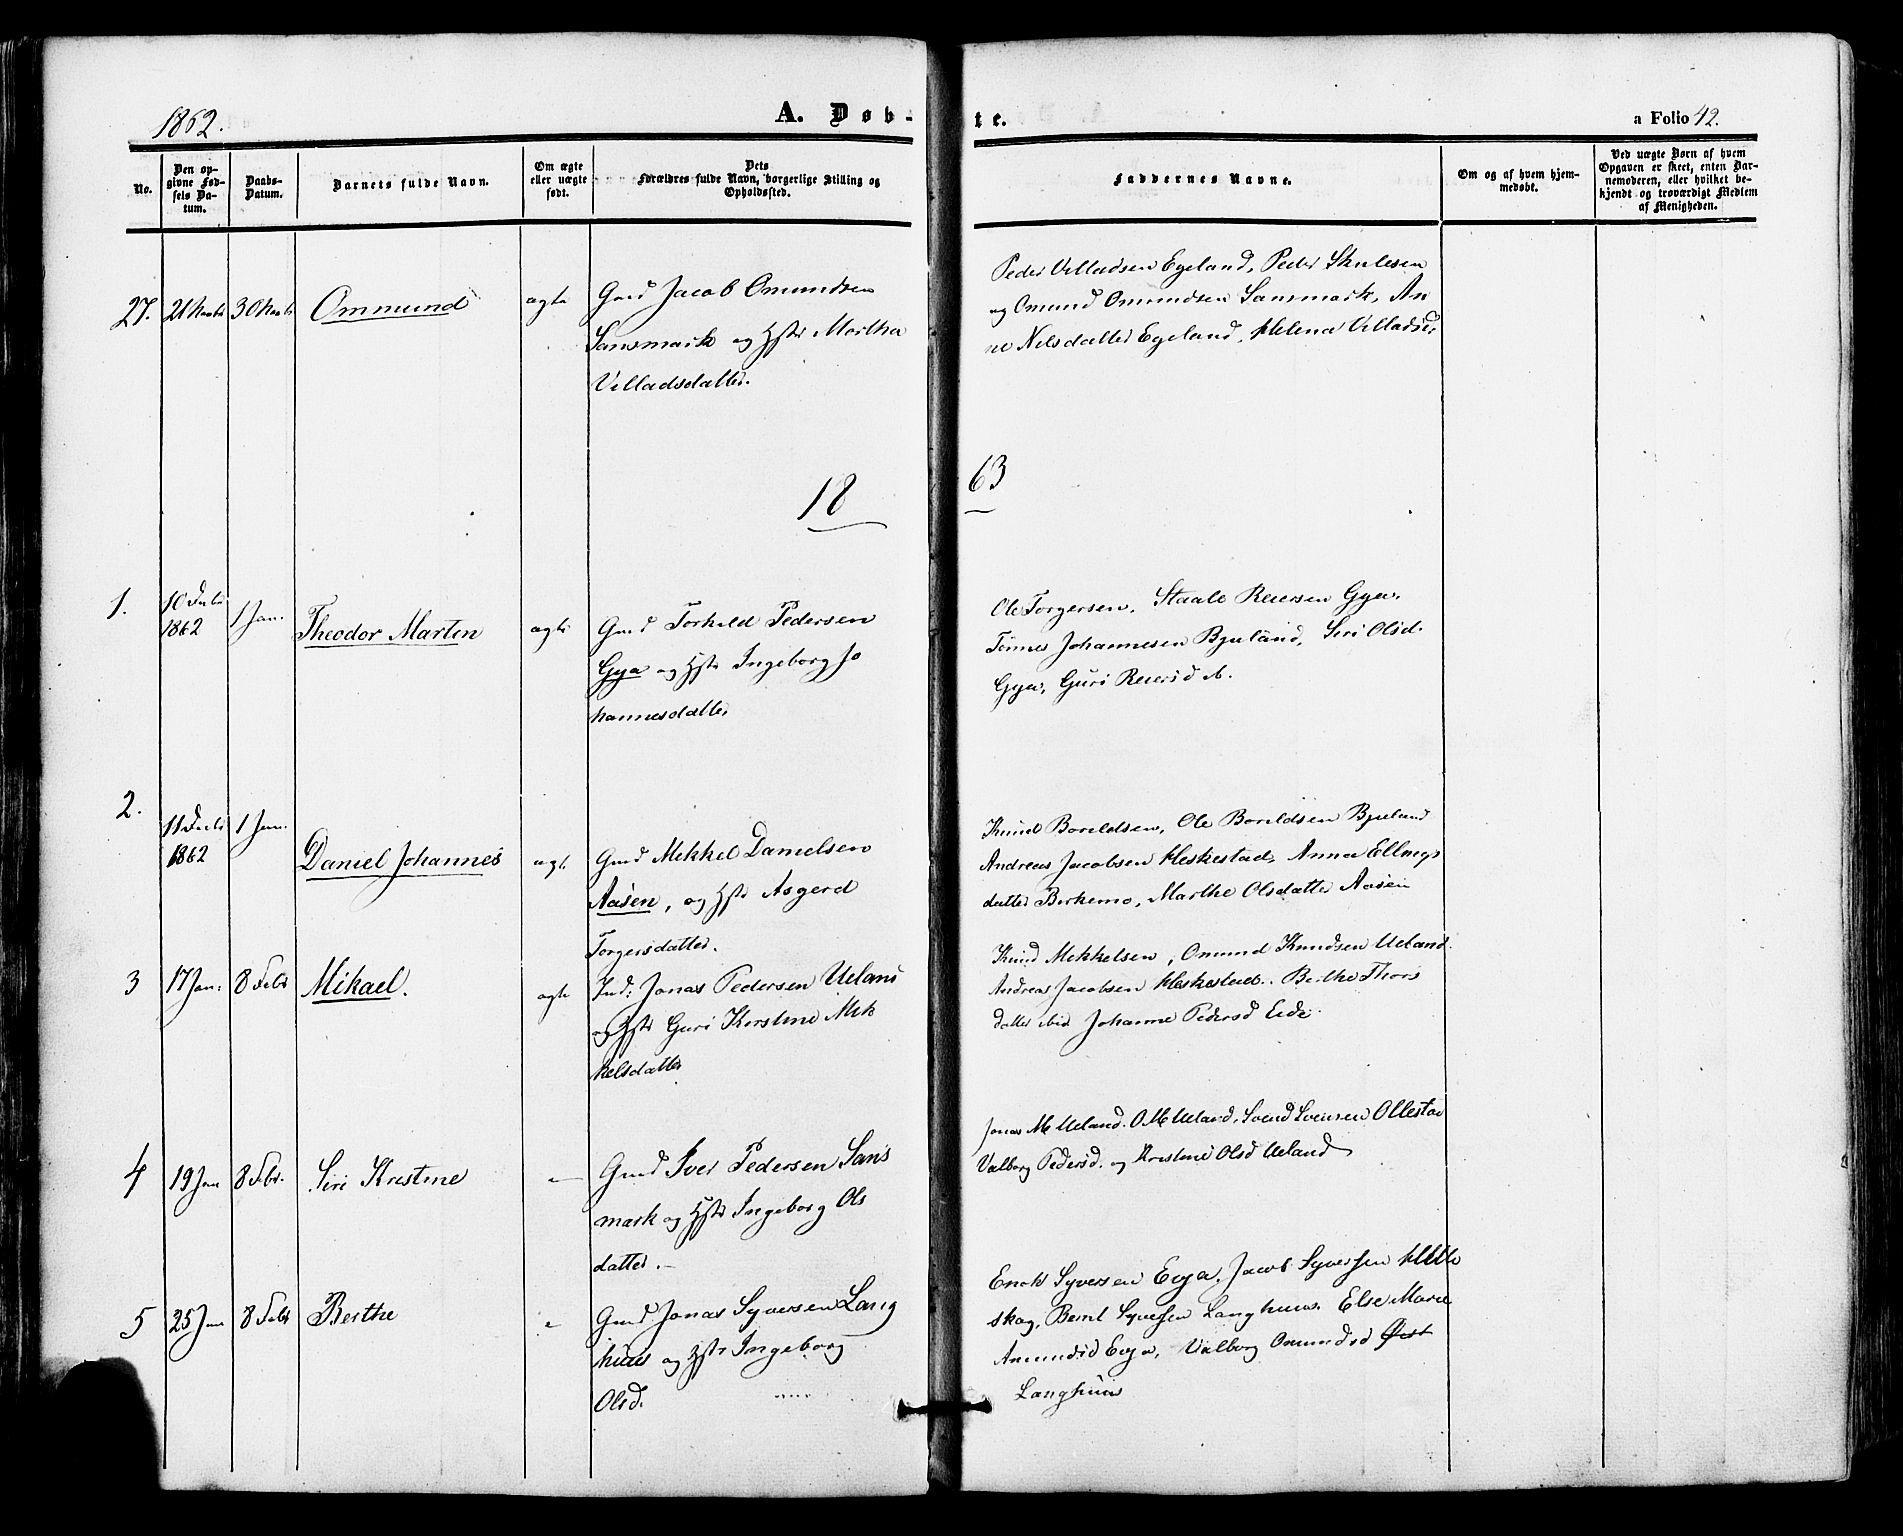 1862.
A. Døb-
te.
a Folio 42.
No.
Den op-
givne Fød-
sels Da-
tum.
Daabs-
Datum.
Barnets fulde Navn.
Om ægte
eller uægte
født.
Dets
Forældres fulde Navn, borgerlige Stilling og
Opholdssted.
Faddernes Navne.
Om og af hvem hjem-
medøbt.
Ved uægte Børn af hvem
Opgaven er skeet, enten Bar-
nemoderen, eller hvilket be-
kjendt og troværdigt Medlem
af Menigheden.
27.
30
Ommund
ægte
Gmd Jacob Omundsen
Sansmark og Hstr Martha
Villadsdatter.
Peder Villadsen Egeland, Peder Skulesen
og Omund Omundsen Sansmark, An
ne Nilsdatter Egeland, Helena Villadsd
18
63
1.
10 Decbr
1862
1 Jan.
Theodor Martin
ægte
Gmd Torkild Pedersen
Gya og Hstr Ingeborg Jo
hannesdatter
Ole Torgersen, Staale Reiersen Gya,
Tønnes Johannesen Bjuland, Siri Olsd.
Gya, Guri Reiersd
2.
11 Decbr
1862
1 Jan.
Daniel Johannes
ægte
Gmd Mikkel Danielsen
Aasen, og Hstr Asgerd
Torgersdatter.
Knud Borildsen, Ole Borildsen Bjuland
Andreas Jacobsen Heskestad, Anna Ellings
datter Birkemo, Marthe Olsdatter Aasen
3
17 Jan:
8 Febr
Mikael.
ægte
Ind: Jonas Pedersen Ueland
og Hstr Guri Kirstine Mik
kelsdatter
Knud Mikkelsen, Omund Knudsen Ueland.
Andreas Jacobsen Heskestad. Berthe Thors
datter ibid Johanne Pedersd Eide.
4
19 Jan
8 Febr.
Siri Kristine
–
Gmd Iver Pedersen Sans
mark og Hstr Ingeborg Ols
datter.
Jonas M Ueland. O M Ueland, Svend Svensen Ollestad
Valborg Pedersd. og Kristine Olsd Ueland
5
25 Jan
8 Febr
Berthe
–
Gmd Jonas Syversen Lang
huus og Hstr Ingeborg
Olsd.
Enok Syversen Eeja, Jacob Syversen Hetle
skog, Bernt Syversen Langhuus. Else Marie
Amundsd Eeja, Valborg Omundsd
Langhuus